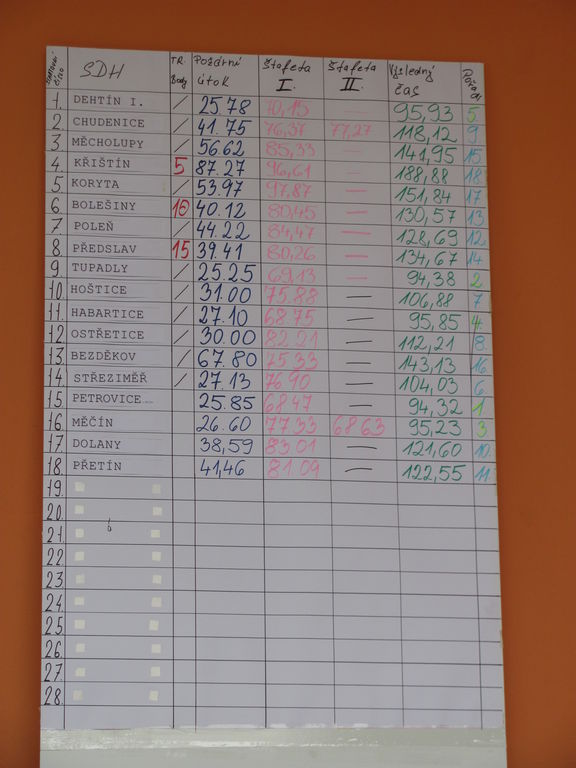 STARTOVNÍ ČÍSLO SDH TR. Body Požární útok Štafeta I. Štafeta II. Výsledný čas
1. DEHTÍN I. / 25.78 70,15 95,93 5.
2. CHUDENICE / 41.75 76,37 77,27 118,12 9.
3. MĚCHOLUPY / 56.62 85,33 — 141,95 15.
4. KŘIŠTÍN 5 87.27 96,61 — 188,88 18.
5. KORYTA / 53.97 97,87 — 151,84 17.
6. BOLEŠINY 10 40.12 80,45 — 130,57 13.
7. POLEŇ / 44.22 84,47 — 128,69 12.
8. PŘEDSLAV 15 39.41 80,26 — 134,67 14.
9. TUPADLY / 25.25 69,13 — 94,38 2.
10. HOŠTICE / 31.00 75.88 — 106,88 7.
11. HABARTICE / 27.10 68 75 — 95,85 4.
12. OSTŘETICE / 30.00 82 21 — 112,21 8.
13. BEZDĚKOV / 67.80 75 33 — 143,13 16.
14. STŘEZIMĚŘ / 27.13 76 90 — 104,03 6.
15. PETROVICE 25.85 68 47 — 94,32 1.
16. MĚČÍN 26.60 77 33 68 63 95,23 3.
17. DOLANY 38,59 83 01 — 121,60 10.
18. PŘETÍN 41,46 81 09 — 122,55 11.
19.
20.
21.
22.
23.
24.
25.
26.
27.
28.